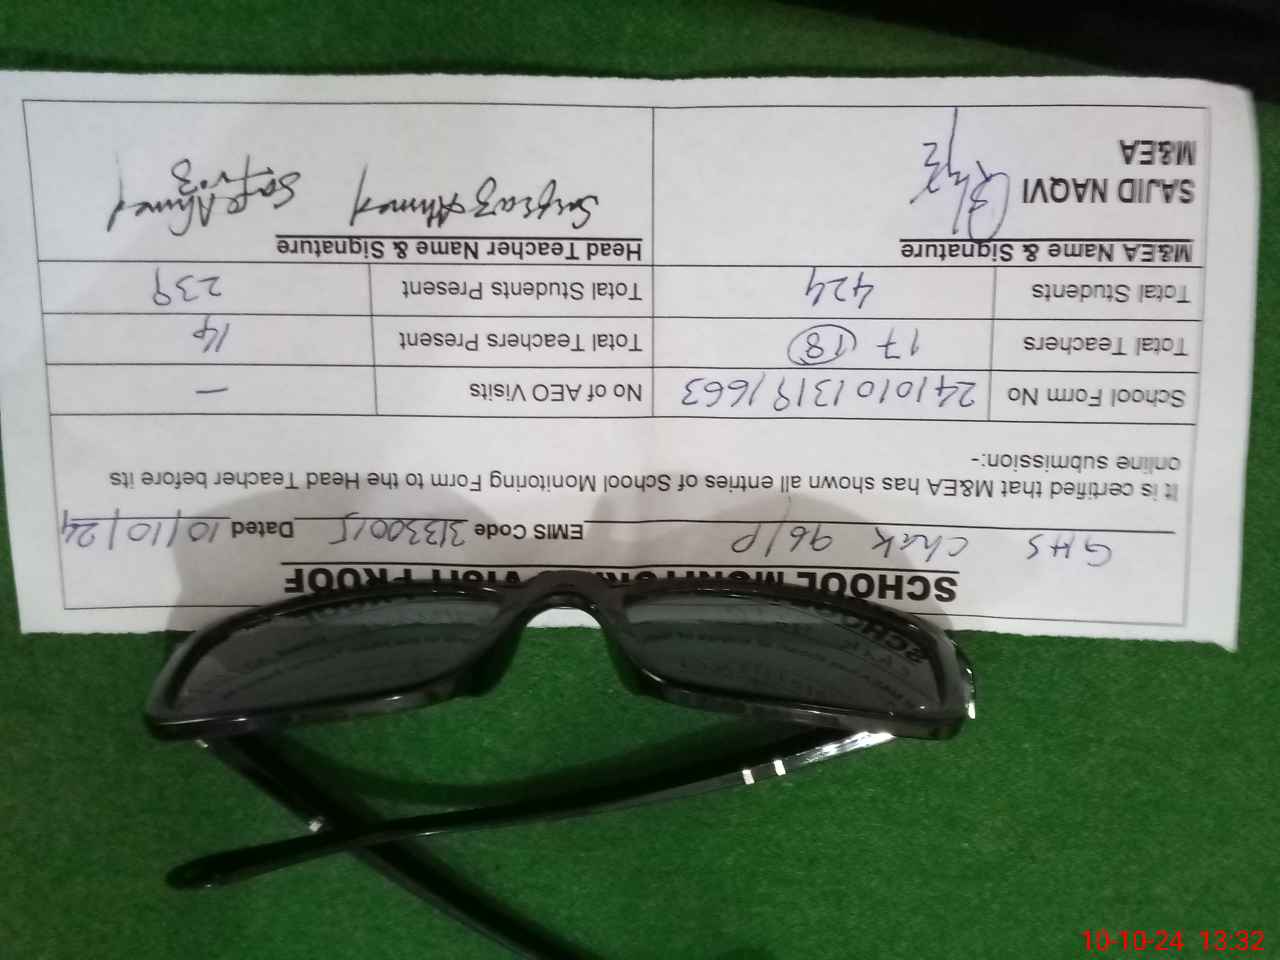 SCHOOL MONITORING VISIT PROOF
GHS Chak 96/P EMIS Code 31330015 Dated 10/10/24
It is certified that M&EA has shown all entries of School Monitoring Form to the Head Teacher before its
online submission:-
School Form No 24101013191663 No of AEO Visits —
Total Teachers 17 (18) Total Teachers Present 14
Total Students 424 Total Students Present 239
M&EA Name & Signature Head Teacher Name & Signature
SAJID NAQVI Sarfraz Ahmed
M&EA
10-10-24 13:32